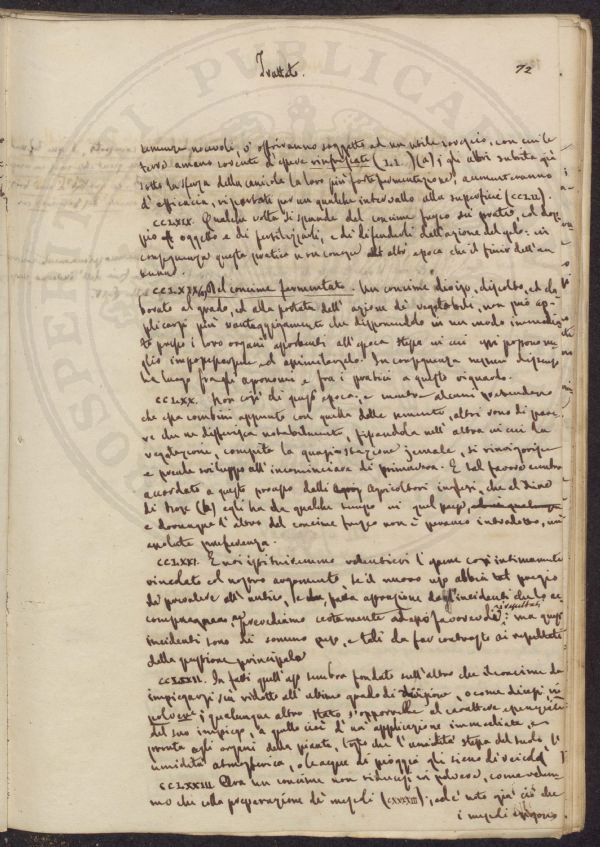 Trattato.
72
semenze nocevoli, s' offriranno soggette ad un utile rovescio, con cui le
terre amano sovente d'essere rinfrescate ( ) (a); gli altri subita già
sotto la sferza della canicola la loro più forte fermentazione, aumenteranno
d'efficacia, riportati per un qualche intervallo alla superficie (CCLII).
CCLXIX. Qualche volta si spande del concime fresco sui prati, ed a dop
pio oggetto e di fertilizzarli, e di difenderli dall'azione del gelo: in
conseguenza questa pratica non conosce altra epoca che il finir dell'au
tunno.
Del concime fermentato. Un concime diviso, disciolto, ed ela
borato al grado, ed alla portata dell'azione de' vegetabili, non può ap
plicarsi più vantaggiosamente che disponendolo in un modo immedia
to presso i loro organi assorbenti all'epoca stessa in cui essi possono me
glio impossessarsene ed assimilarselo. In conseguenza nessun dissenso
ha luogo fra gli agronomi e fra i pratici a questo riguardo.
CCLXX. Non così di quest'epoca; e mentre alcuni pretendono
che essa combini appunto con quella delle semente, altri sono di pare
re che ne differisca notabilmente, fissandola nell'altra in cui la
vegetazione, compita la quasi stazione jemale, si rinvigorisce
e prende sviluppo all'incominciare di primavera. E tal favore sembra
accordato a questo processo dalli Agricoltori inglesi, che al dire
di (b) egli ha da qualche tempo in quel paese,
e dovunque l'altro del concime fresco non è peranco introdotto, un'
assoluta preferenza.
CCLXXI. E noi istituiremmo volentieri l'esame così intimamente
vincolato al nostro argomento, se il nuovo uso abbia tal pregio
da prevalere all'antico, se fatta astrazione dagl'incidenti che lo ac
compagnano, prevediamo certamente i risultati: ma questi
incidenti sono di sommo peso, e tali da far contrasto ai risultati
della questione principale.
CCLXXII. In fatti quest'uso sembra fondato sull'altro che il concime da
impiegarsi sia ridotto all'ultimo grado di divisione, o come dicesi in
polvere: qualunque altro stato s'opporrebbe al carattere essenziale
del suo impiego, a quello cioè d'un'applicazione immediata, e
pronta agli organi della pianta, tosto che l'umidità stessa del suolo, l'
umidità atmosferica, o le acque di pioggia gli sieno di veicolo.
CCLXXIII. Ora un concime non riducesi in polvere, come vedem
mo che colla preparazione de' mescoli (CXXXIII); ed è noto già ciò che
i mescoli esigono